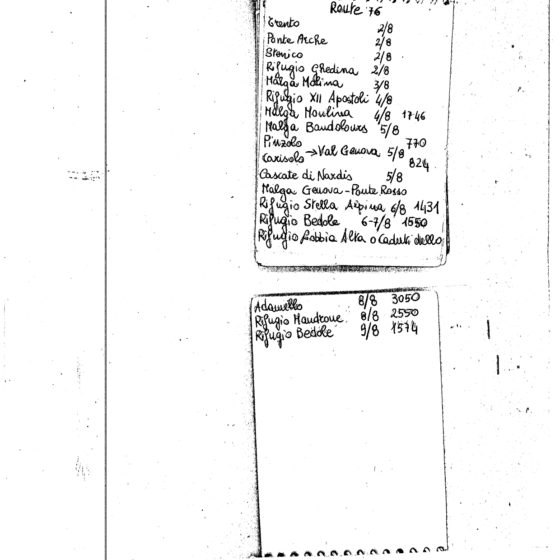 Route '76
Trento 2/8
Ponte Arche 2/8
Stenico 2/8
Rifugio Ghedina 2/8
Malga Molina 3/8
Rifugio XII Apostoli 4/8
Malga Moulina 4/8 1746
Malga Bandolours 5/8
Pinzolo 770
Carisolo →Val Genova 5/8 824
Cascate di Nardis 5/8
Malga Genova - Ponte Rosso
Rifugio Stella Alpina 6/8 1431
Rifugio Bedole 6-7/8 1550
Rifugio Lobbia Alta o Caduti dello
Adamello 8/8 3050
Rifugio Mandrone 8/8 2550
Rifugio Bedole 9/8 1574